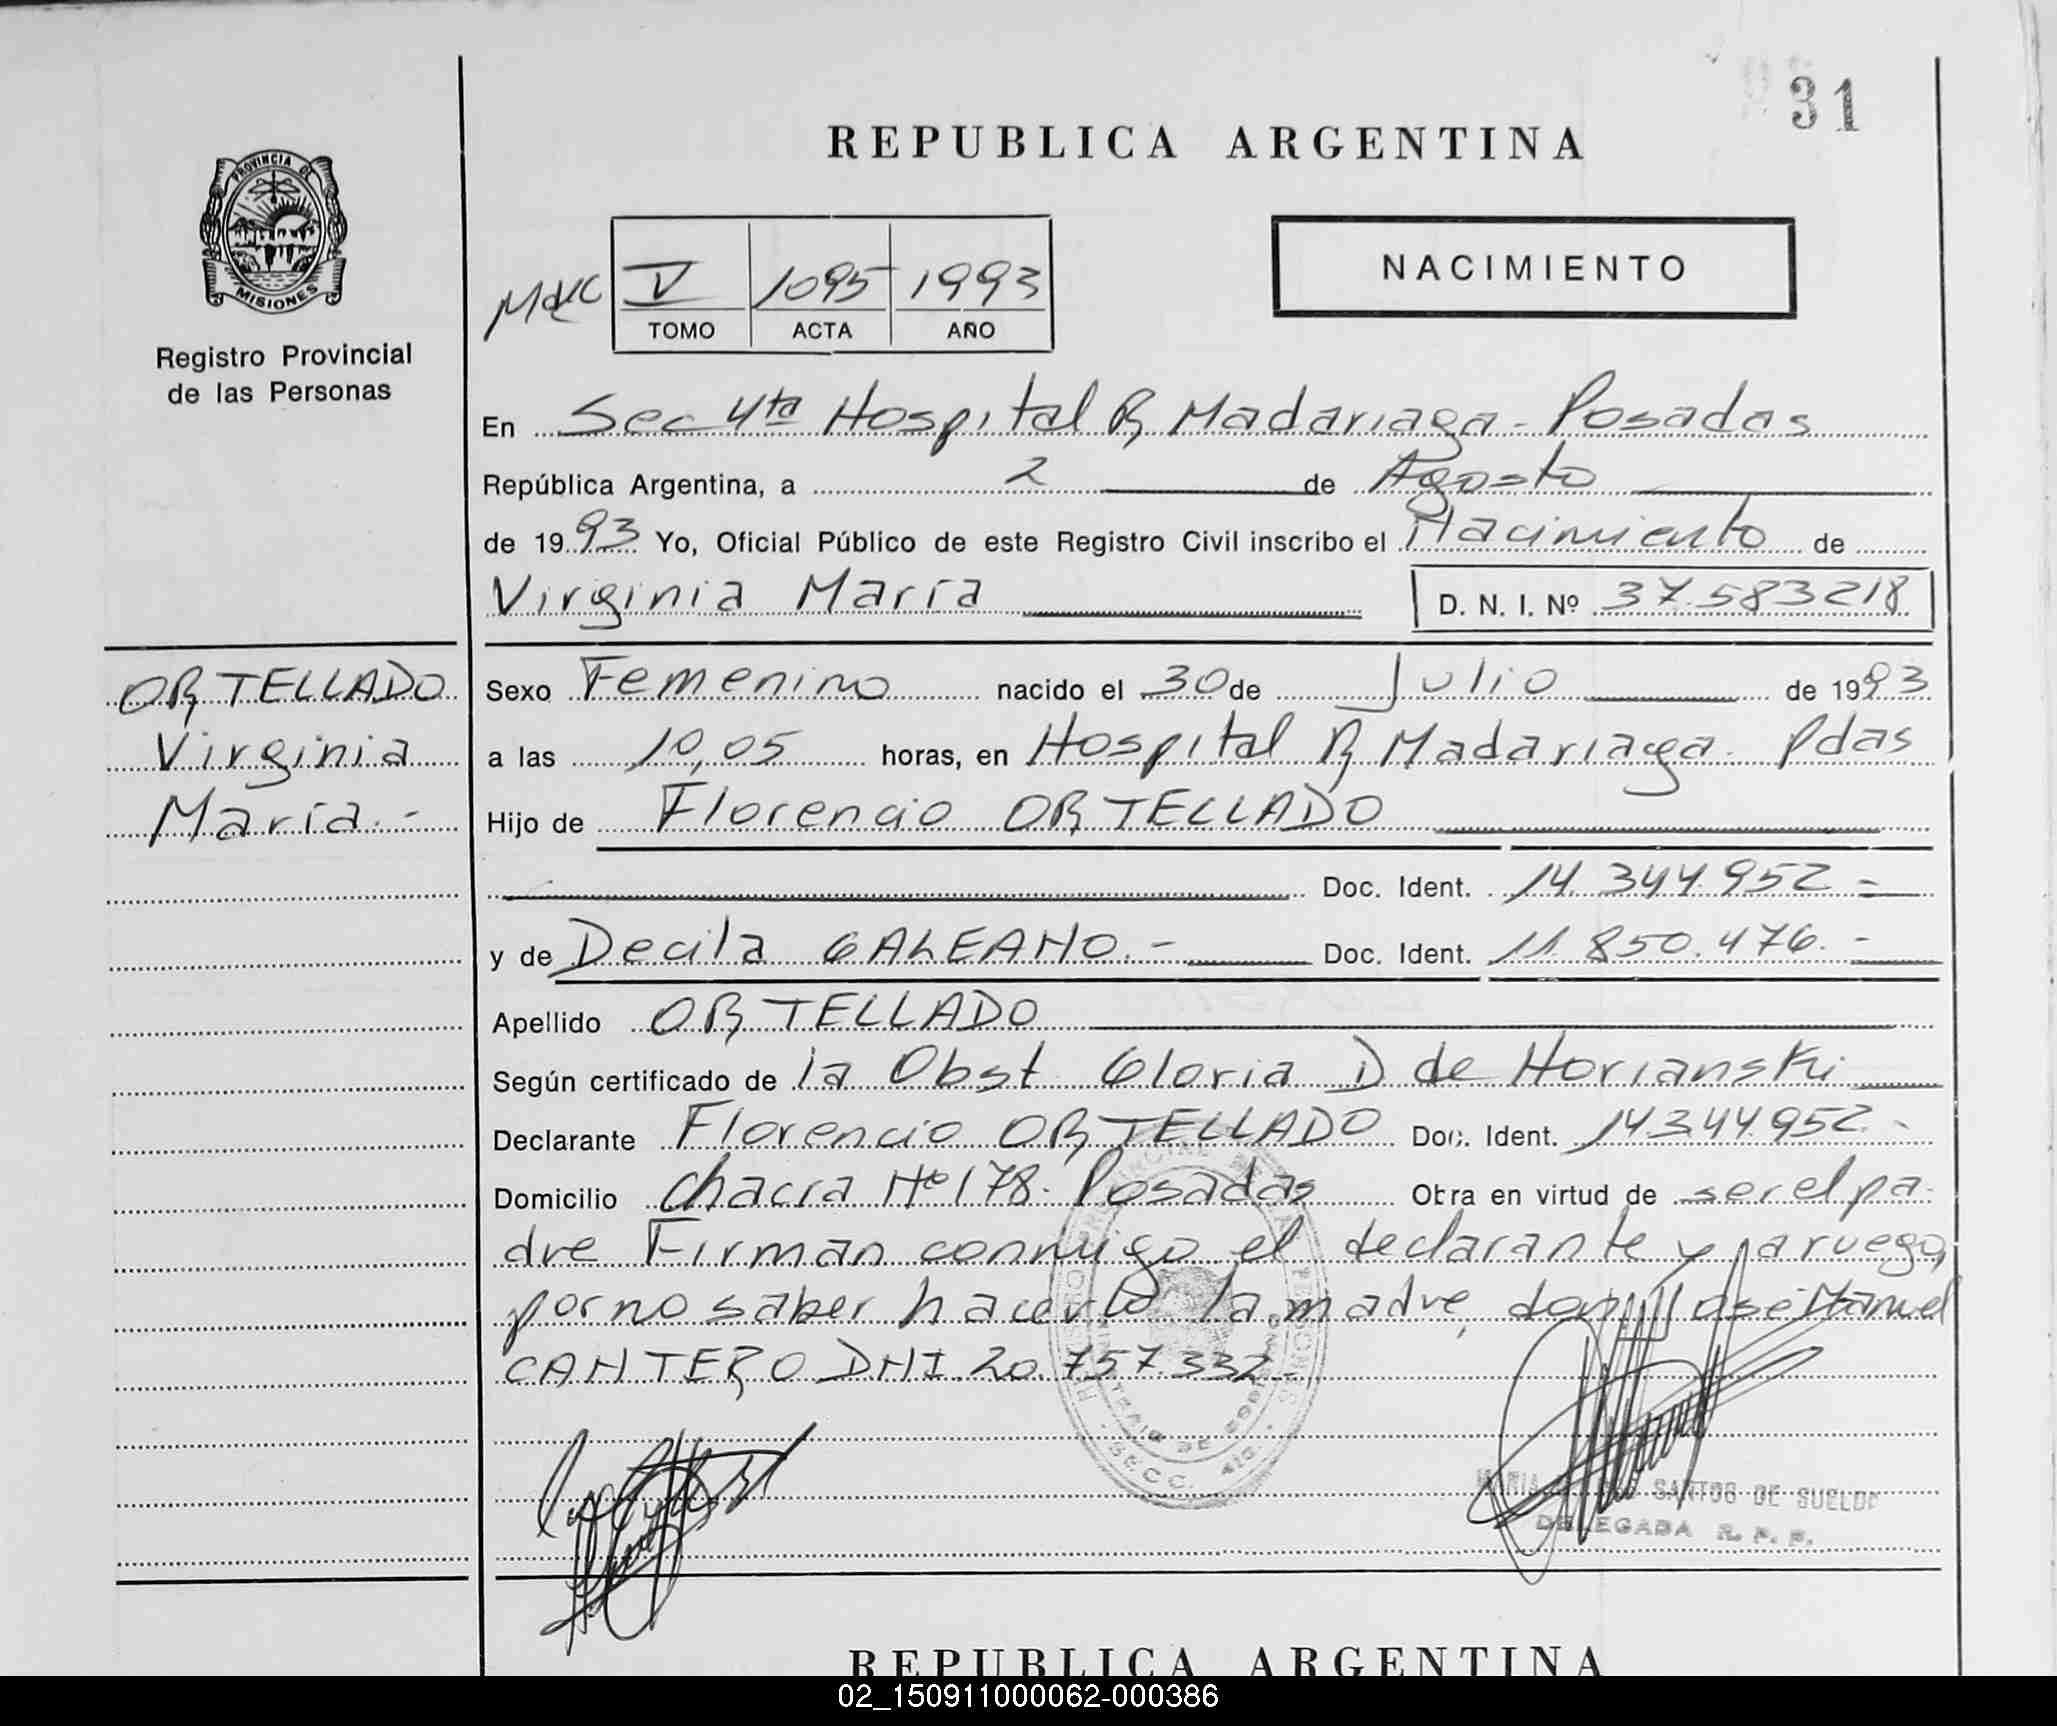 31
REPUBLICA ARGENTINA
PROVINCIA DE
MISIONES
Registro Provincial
de las Personas
V 1095 1993
TOMO ACTA AÑO
NACIMIENTO
En Sec 4ta Hospital R Madariaga - Posadas
República Argentina, a 2 de Agosto
de 1993 Yo, Oficial Público de este Registro Civil inscribo el Nacimiento de
Virginia María D. N. I. Nº 37.583218
ORTELLADO
Virginia
María.-
Sexo Femenino nacido el 30 de Julio de 1993
a las 10,05 horas, en Hospital R Madariaga. Pdas
Hijo de Florencio ORTELLADO
Doc. Ident. 14.344.952 =
y de Decila GALEANO.- Doc. Ident. 11.850.476.-
Apellido ORTELLADO
Según certificado de la Obst Gloria D de Horianski
Declarante Florencio ORTELLADO Doc. Ident. 14344.952.-
Domicilio Chacra Nº 178. Posadas Obra en virtud de ser el pa-
dre Firman conmigo el declarante y a ruego,
por no saber hacerlo la madre, don José Manuel
CANTERO DNI.20.757.332-
SANTOS DE SUELDO
DELEGADA R. P. P.
REPUBLICA ARGENTINA
02_150911000062-000386